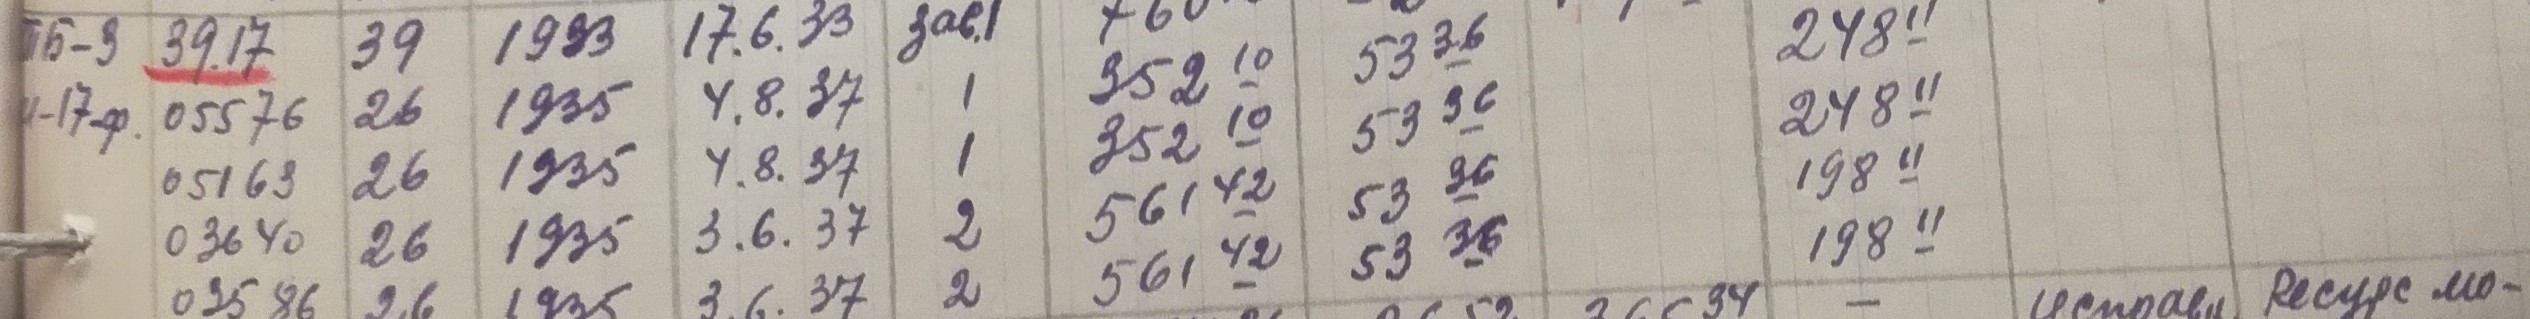 ТБ-3 39.17 39 1933 17.6.33 зав.1 760
И-17-ф. 05576 26 1935 4.8.37 1 352 10 53 36 248 "
05163 26 1935 4.8.37 1 352 10 53 36 248 "
03640 26 1935 3.6.37 2 561 42 53 36 198 "
03586 26 1935 3.6.37 2 561 42 53 36 198 "
34 — Исправн. Ресурс мо-